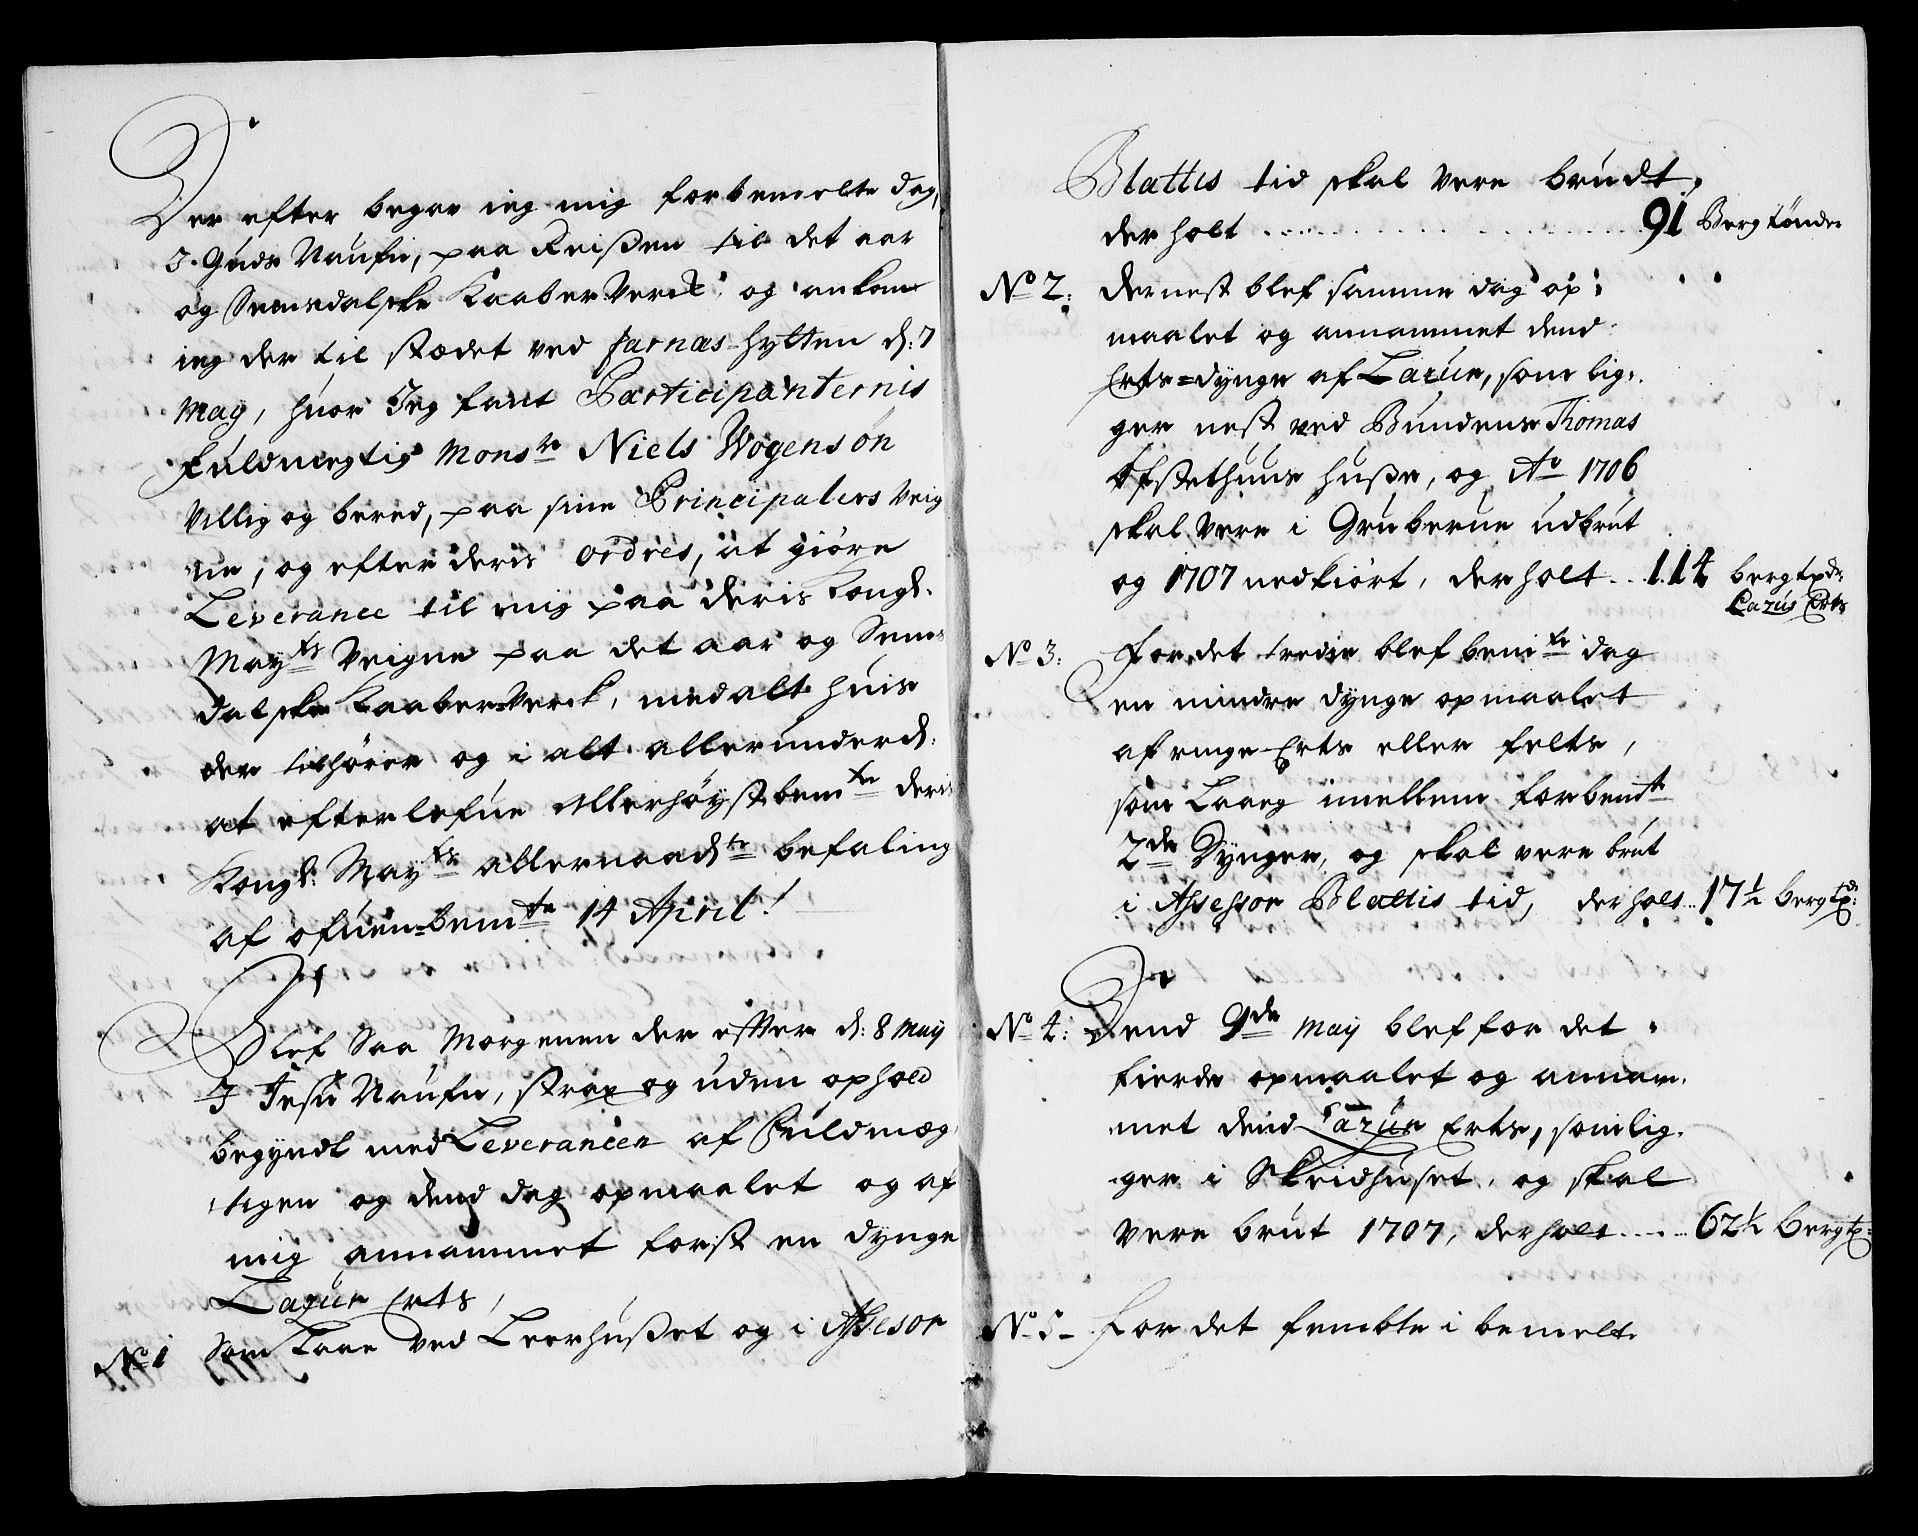 Der efter begav ieg mig forbemelte dag,
I Guds Naufn, paa Reißen til det aar
og Semsdalske Kaaber Verck, og ankom
ieg der til stædet ved Jarnæs-hytten d: 7
May, huor Jeg fant Participanternis
fuldmegtig Monsr Niels Wogensøn
Villig og bered, paa sine Principalers Veig
ne, og efter deris ordres, at giøre
Leverance til mig paa deris Kongl.
Mayts Veigne paa det aar og Sems
dalske Kaaber-Verck, med alt huis
der tilhører og i alt allerunderd:
at efterlefue Allerhøystbemte deris
Kongl: Mayts allernaadste befaling
af ofuen-bemte 14 April!
Blef Saa Morgenen der effter d: 8 May
I Jesu Naufn, strax og uden ophold
begyndt med Leverancen af Fuldmæg
tigen og dend dag opmaalet og af
mig annammet forst en dynge
Lazur Erts,
No 1 Som Laae ved Leerhußet og i Assesor
Blattis tid skal vere brudt,
der holt 91 Berg tønder
No 2: dernest blef samme dag op:
maalet og annammet dend
Erts=dynge af Lazur, som lig,
ger nest ved Bundens Thomas
Ofstethuus huße, og Ao 1706
skal vere i Gruberne udbrut
og 1707 nedkiört, der holt 114 bergtdr
Lazur Erts
No 3: For det tredie blef bemte dag
en mindre dynge opmaalet
af ringe Erts eller felts,
som Laaeg imellem forbemte
2de Dynger, og skal vere brut
i Assessor Blattis tid, der holt 17½ bergtd:
No 4: Dend 9de May blef for det
fierde opmaalet og annam,
met dend Lazur Erts, som lig,
ger i Skeidhuset, og skal
vere brut 1707, der holt 62½ bergt:
No 5 For det fembte i bemelt